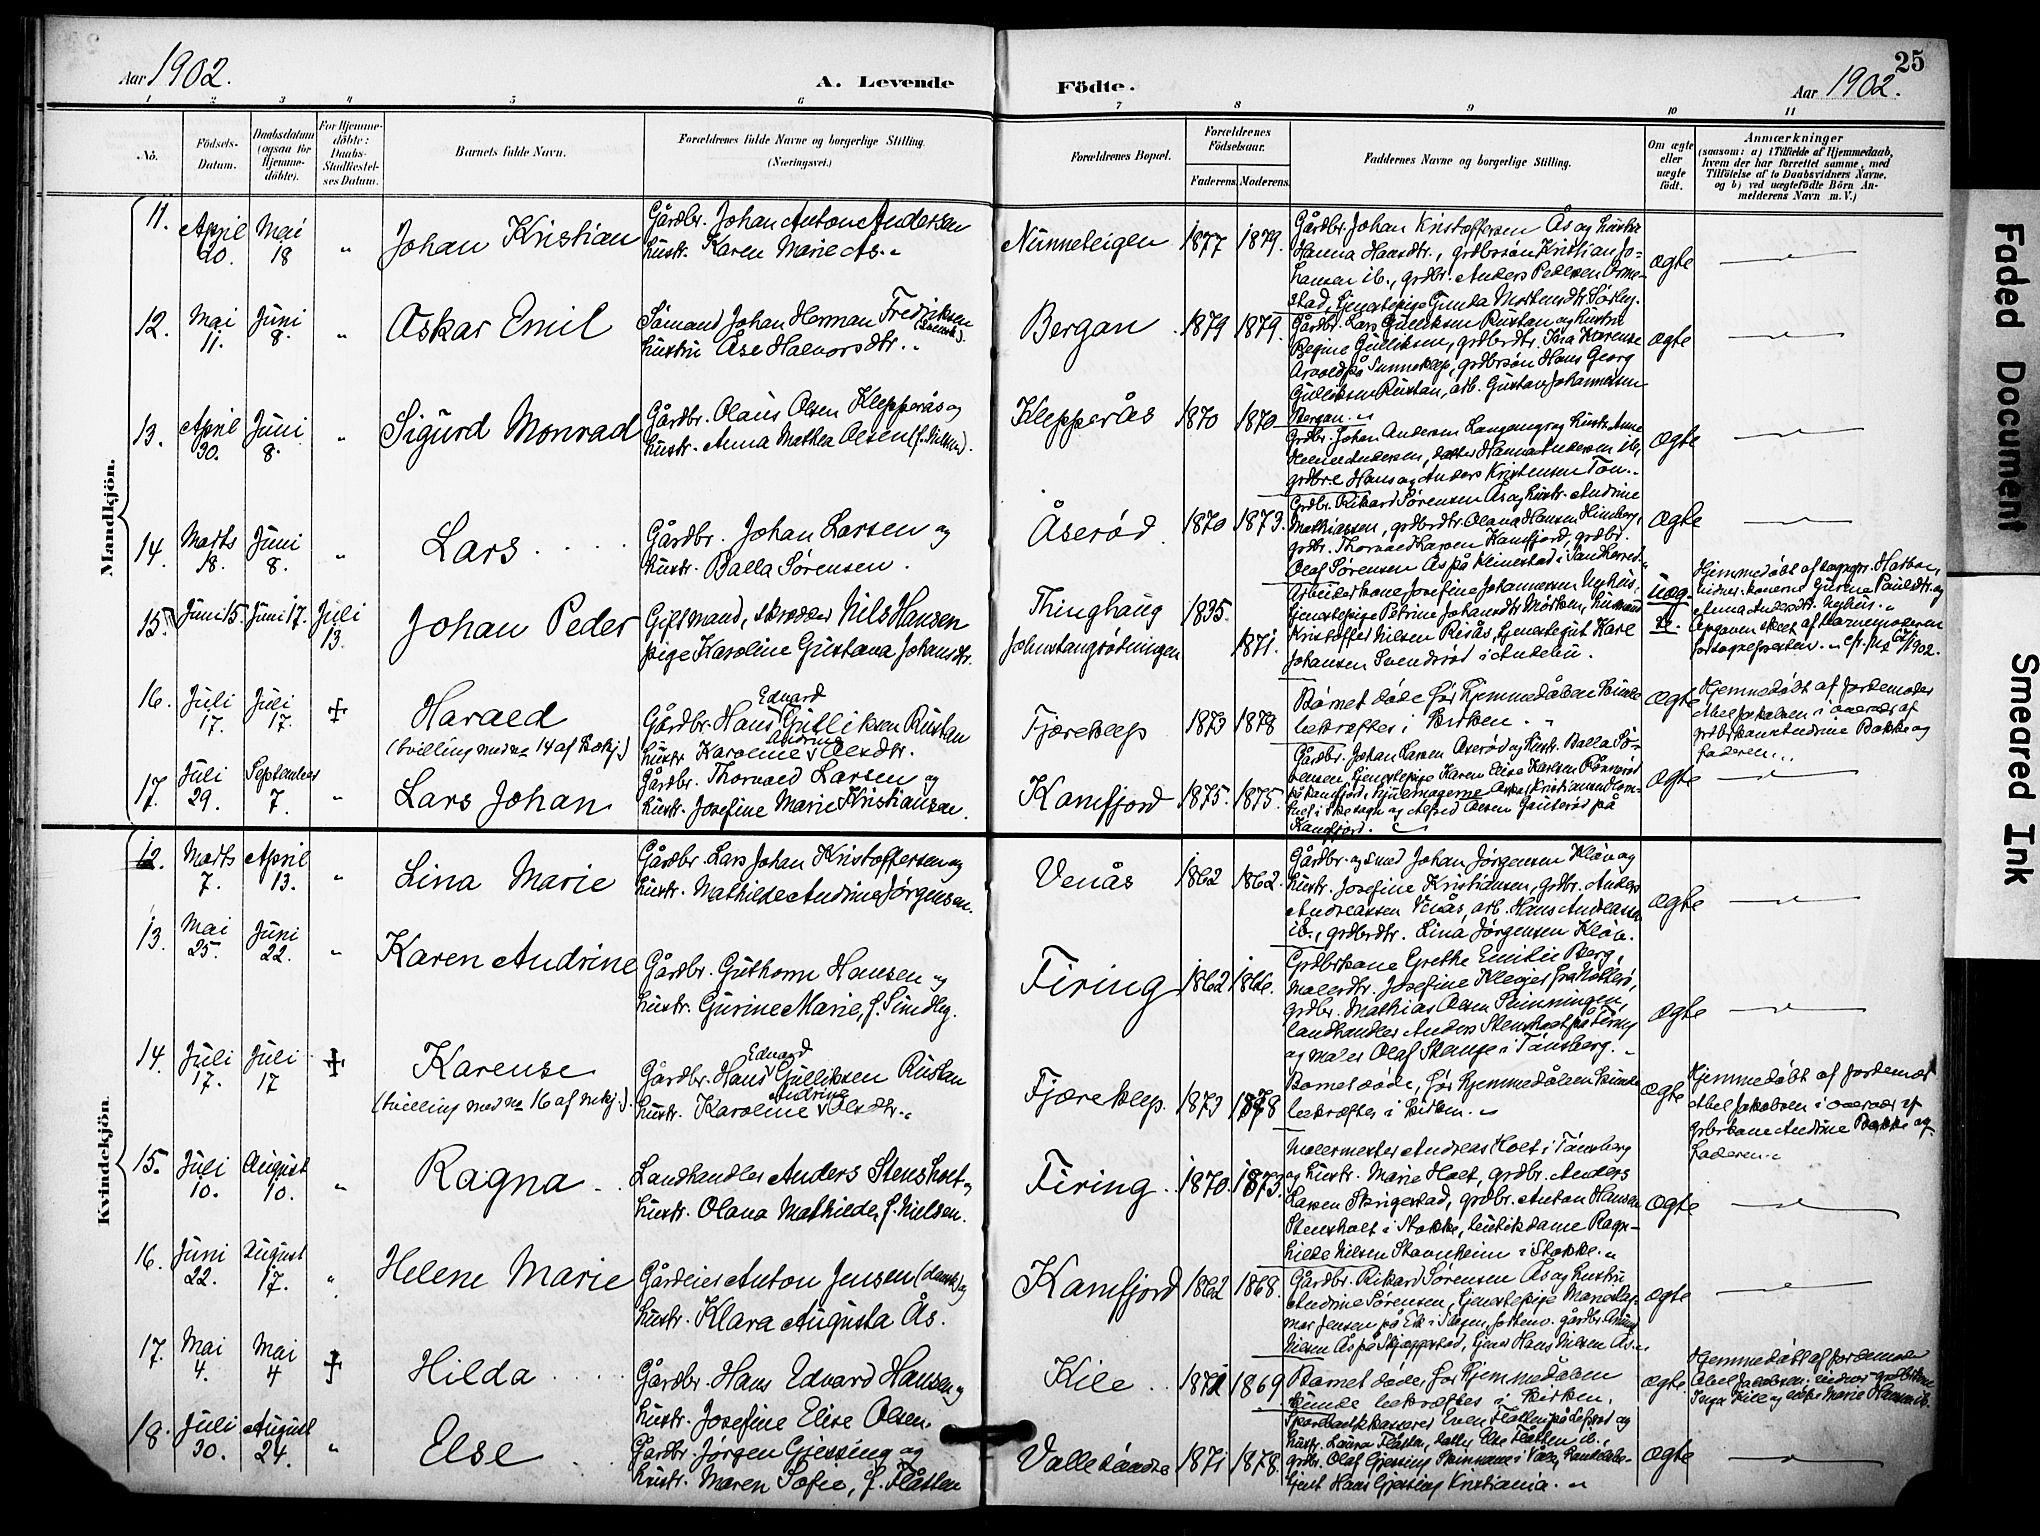 25
Aar 1902.
A. Levende
Födte.
Aar 1902.
1 2 3 4 5 6 7 8 9 10 11
No.
Födsels-
Datum.
Daabsdatum
(ogsaa for
Hjemme-
döbte).
For Hjemme-
döbte:
Daabs-
Stadfæstel-
ses Datum.
Barnets fulde Navn.
Forældrenes fulde Navne og borgerlige Stilling.
(Næringsvei.)
Forældrenes Bopæl.
Forældrenes
Födselsaar.
Faderens.
Moderens.
Faddernes Navne og borgerlige Stilling.
Om ægte
eller
uægte
født.
Anmærkninger
(saasom: a) i Tilfælde af Hjemmedaab,
hvem der har forrettet samme, med
Tilföielse af to Daabsvidners Navne,
og b) ved uægtefödte Börn An-
melderens Navn m. V.)
Mandkjön.
11. April 20. Mai 18 " Johan Kristian
Gårdbr. Johan Anton Andersen
hustr. Karen Marie Ås."
Nunneteigen 1877 1879.
Gårdbr. Johan Kristoffersen Ås og hustru
Hanna Hansdtr., grdbrsøn Kristian Jo-
hansen ib., grdbr. Anders Pedersen
stad, tjenestepige Gunda Mortensdtr. Sørby.
ægte
12. Mai 11. Juni 8. " Oskar Emil
Sömand Johan Herman Fredriksen
(svensk).
hustru Åse Halvorsdtr."
Bergan 1879 1879.
Gårdbr. Lars Gulliksen Rustan og hustru
Regine Gulliksen, grdbrdtr. Ina Karense
på Sunneklep, grdbrsøn Hans Georg
Gulliksen Rustan, arb. Gustav Johannessen
Bergan."
ægte
13. April 30. Juni 8. " Sigurd Monrad
Gårdbr. Olaus Olsen Klepperås og
hustr. Anna Mathea Olsen (f. Nielsen).
Klepperås 1870 1870
Grdbr. Johan Andersen Langang og hustr. Anne
Helene Andersen, datter Hanna Andersen ib.,
grdbre Hans og Anders Kristensen Ton."
ægte
14. Marts 18. Juni 8. " Lars
Gårdbr. Johan Larsen og
hustr. Balla Sørensen.
Åserød 1870 1873.
Grdbr. Rikard Sørensen Ås og hustr. Andrine
Mathiassen, grdbrdtr. Olava Hansen Himberg,
grdbr. Thorvald Larsen Kamfjord, grdbr.
Olaf Sørensen Ås på Heimestad i Sandherred."
ægte
15. Juni 15. Juni 17. Juli 13. Johan Peder
Gift mand, skrædder Nils Hansen
pige Karoline Gustava Johansdtr.
Thinghaug 1835.
Johnstangrødningen 1871.
Arbeiderkone Josefine Johannessen Nyhus,
tjenestepige Petrine Johansdtr. Mørken,
Kristoffer Nilsen Risås, tjenestegut Karl
Johansen Svendsrød i Andebu.
uæg-
te.
Hjemmedöbt af sognepr. Hatboe,
vidner: konerne Gurine Paulsdtr. og
Anna Andersdtr. Nyhus."
Opgaven skeet af barnemoderen
for sognepresten."
16. Juli 17. Juli 17. ✝ Harald
(tvilling med no 14 af kvkj.)
Edvard
Gårdbr. Hans Gulliksen Rustan
Andrine
hustr. Karoline Olsdtr.
Fjæreklep 1873 1878
Barnet døde før hjemmedåben kunde
bekræftes i kirken."
ægte
Hjemmedöbt af jordemoder
Abel Jakobsen i overvær af
grdbrkone Andrine Bakke og
faderen.."
17. Juli 29. September 7. " Lars Johan
Gårdbr. Thorvald Larsen og
hustr. Josefine Marie Kristiansen.
Kamfjord 1875. 1875.
Gårdbr. Johan Larsen Åserød og hustr. Balla Sø-
rensen, tjenestepige Karen Elise Karlsen
på Kamfjord, hjulmagerne Oskar Kristiansen
i Skesogn og Alfred Olsen Gauterød på
Kamfjord.
ægte
Kvindekjön.
12. Marts 7. April 13. " Lina Marie
Gårdbr. Lars Johan Kristoffersen og
hustr. Mathilde Andrine Jørgensen.
Venås 1862 1862.
Gårdbr. og smed Johan Jørgensen Kløv og
hustr. Josefine Kristiansen, grdbr. Anders
Andreassen Venås, arb. Hans Andreassen
ib., grdbrdtr. Lina Jørgensen Kløv.
ægte
13. Mai 25. Juni 22. " Karen Andrine
Gårdbr. Guthorm Hansen og
hustr. Gurine Marie, f. Sundby.
Firing 1862 1866.
Grdbrkone Grethe Emilie Berg,
malerdtr. Josefine Klevjer fra Nøtterø,
grdbr. Mathias Olsen Skinningen,
landhandler Anders Stensholt på Firing
og maler Olaf Stange i Tønsberg."
ægte
14. Juli 17. Juli 17 ✝ Karense
(tvilling med no 16 af mkj.).
Edvard
Gårdbr. Hans Gulliksen Rustan
Andrine
hustr. Karoline Olsdtr."
Fjæreklep. 1873 1878
Barnet døde, før hjemmedåben kunde
bekræftes i kirken."
ægte
Hjemmedöbt af jordemoder
Abel Jakobsen i overvær af
grdbrkone Andrine Bakke og
faderen."
15. Juli 10. August 10. " Ragna
Landhandler Anders Stensholt og
hustr. Olava Mathilde, f. Nielsen.
Firing 1870. 1873.
Malermester Andreas Holt i Tønsberg
og hustr. Marie Holt, grdbr. Anders
Larsen Skrigestad, grdbr. Anton Hansen
Stensholt i Stokke, butikdame Ragn-
hilde Nilsen Stavnheim i Stokke."
ægte
16. Juni 22. August 17. " Helene Marie
Gårdeier Anton Jensen (dansk) og
hustr. Klara Augusta Ås.
Kamfjord 1862 1868.
Gårdbr. Rikard Sørensen Ås og hustru
Andrine Sørensen, tjenestepige
Jensen på Eik i Slagen,
Nilsen Ås på Skjeggestad, tjener Hans Nilsen Ås."
ægte
17. Mai 4. Mai 4 ✝ Hilda
Gårdbr. Hans Edvard Hansen og
hustr. Josefine Elise Olsen.
Kile 1871 1869
Barnet døde før hjemmedåben
kunde bekræftes i kirken.
ægte
Hjemmedöbt af jordemoder
Abel Jakobsen; vidner: grdbrkone
Inga Kile og enke Marie Hansen ib.
18. Juli 30. August 24. " Else
Gårdbr. Jørgen Gjessing og
hustr. Maren Sofie, f. Flåtten
Valleløndre 1871 1878.
Sparebankkasserer Even Flåtten på Lefsrød og
hustr. Laura Flåtten, datter Else Flåtten ib.,
grdbr. Olaf Gjessing i Våle,
Hans Gjessing Kristiania."
ægte
Faded Document
Smeared Ink